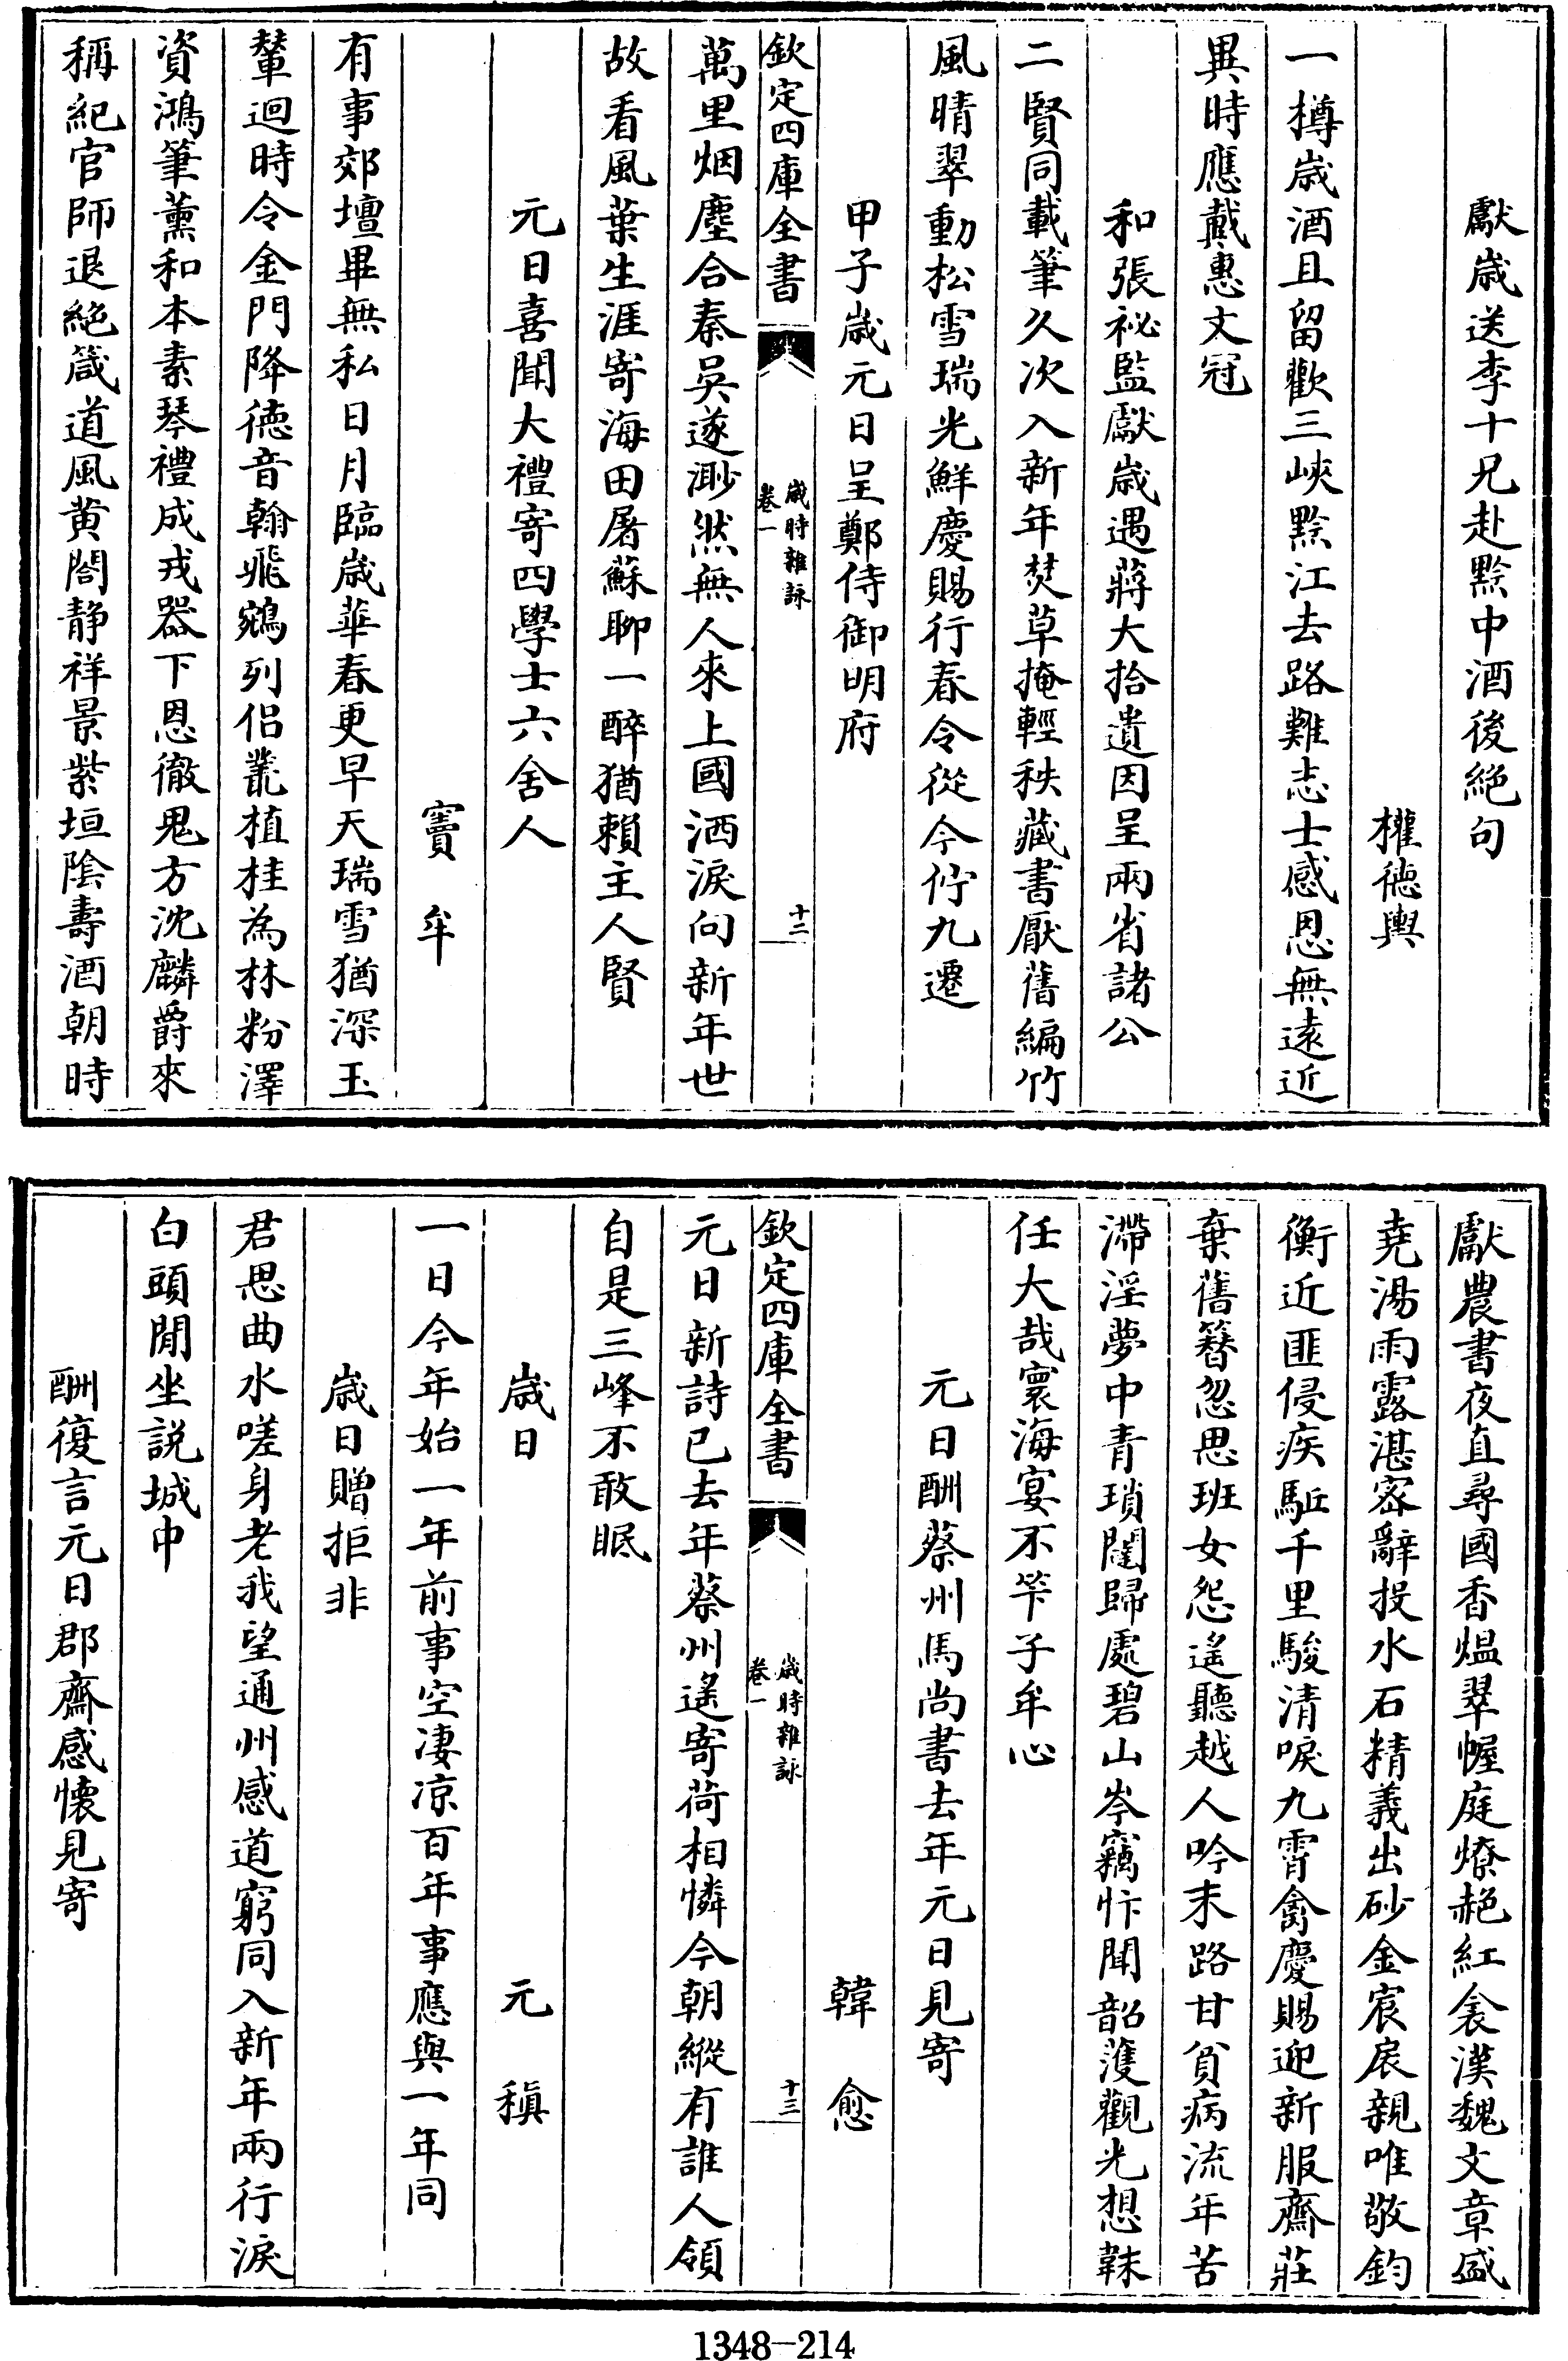 獻歲送李十兄赴黔中酒後絶句
權德輿
一樽歲酒且留歡三峽黔江去路難志士感恩無遠近
異時應戴惠文冠
和張祕監獻歲遇蔣大拾遺因呈兩省諸公
二賢同載筆久次入新年焚草掩輕秩藏書厭舊編竹
風晴翠動松雪瑞光鮮慶賜行春令從今佇九遷
甲子歲元日呈鄭侍御明府
欽定四庫全書
歲時雜詠
卷一
十二
萬里烟塵合秦吳遂渺然無人來上國洒淚向新年世
故看風葉生涯寄海田屠蘇聊一醉猶賴主人賢
元日喜聞大禮寄四學士六舍人
竇牟
有事郊壇畢無私日月臨歲華春更早天瑞雪猶深玉
輦迴時令金門降徳音翰飛鵷列侶叢植桂為林粉澤
資鴻筆薰和本素琴禮成戎器下恩徹鬼方沈麟爵來
稱紀官師退絶箴道風黄閤静祥景紫垣陰壽酒朝時
獻農書夜直尋國香煴翠幄庭燎赩紅衾漢魏文章盛
堯湯雨露湛密辭投水石精義出砂金宸扆親唯敬鈞
衡近匪侵疾駈千里駿清唳九霄禽慶賜迎新服齋莊
棄舊簪忽思班女怨遥聽越人吟末路甘貧病流年苦
滯淫夢中青瑣闥歸處碧山岑竊忭聞韶濩觀光想韎
任大哉寰海宴不笇子牟心
元日酬蔡州馬尚書去年元日見寄
韓愈
欽定四庫全書
歲時雜詠
卷一
十三
元日新詩已去年蔡州遥寄荷相憐今朝縱有誰人領
自是三峰不敢眠
歲日
元稹
一日今年始一年前事空凄凉百年事應與一年同
歲日贈拒非
君思曲水嗟身老我望通州感道窮同入新年兩行淚
白頭閒坐説城中
酬復言元日郡齋感懷見寄
1348-214